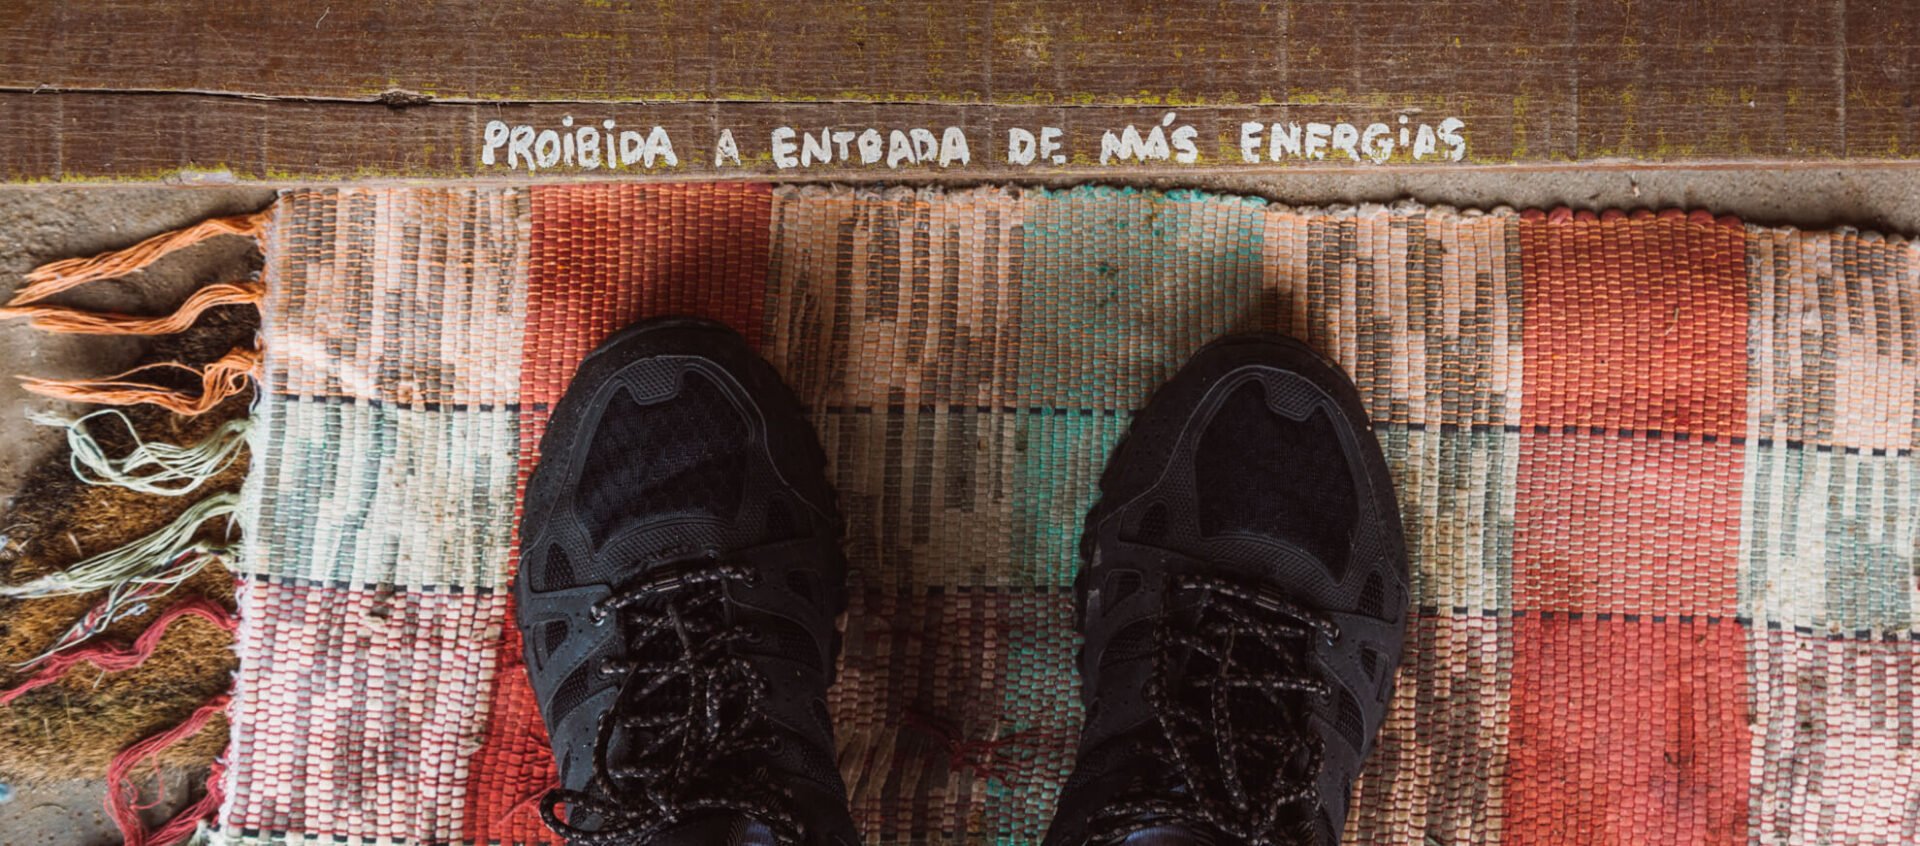 PROIBIDA A ENTRADA DE MÁS ENERGIAS